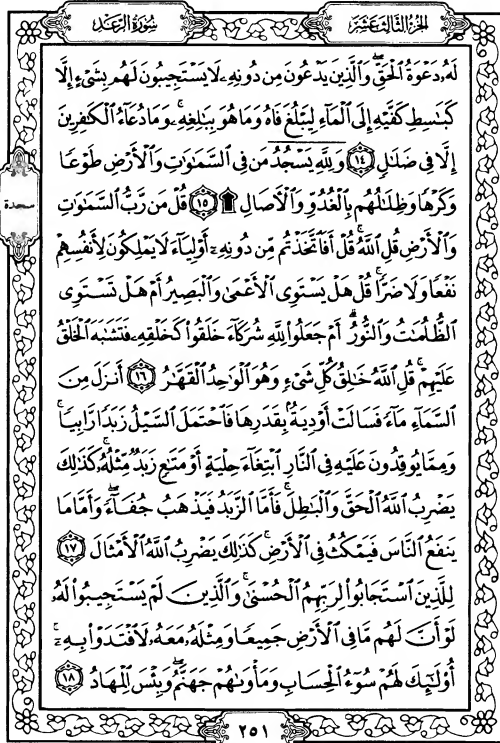 الجزء الثالث عشر
سورة الرعد
لَهُۥ دَعْوَةُ ٱلْحَقِّ ۖ وَٱلَّذِينَ يَدْعُونَ مِن دُونِهِۦ لَا يَسْتَجِيبُونَ لَهُم بِشَىْءٍ إِلَّا
كَبَـٰسِطِ كَفَّيْهِ إِلَى ٱلْمَآءِ لِيَبْلُغَ فَاهُ وَمَا هُوَ بِبَـٰلِغِهِۦ ۚ وَمَا دُعَآءُ ٱلْكَـٰفِرِينَ
إِلَّا فِى ضَلَـٰلٍ ١٤ وَلِلَّهِ يَسْجُدُ مَن فِى ٱلسَّمَـٰوَٰتِ وَٱلْأَرْضِ طَوْعًا
وَكَرْهًا وَظِلَـٰلُهُم بِٱلْغُدُوِّ وَٱلْـَٔاصَالِ ۩ ١٥ قُلْ مَن رَّبُّ ٱلسَّمَـٰوَٰتِ
سجدة
وَٱلْأَرْضِ قُلِ ٱللَّهُ ۚ قُلْ أَفَٱتَّخَذْتُم مِّن دُونِهِۦٓ أَوْلِيَآءَ لَا يَمْلِكُونَ لِأَنفُسِهِمْ
نَفْعًا وَلَا ضَرًّا ۚ قُلْ هَلْ يَسْتَوِى ٱلْأَعْمَىٰ وَٱلْبَصِيرُ أَمْ هَلْ تَسْتَوِى
ٱلظُّلُمَـٰتُ وَٱلنُّورُ ۗ أَمْ جَعَلُوا۟ لِلَّهِ شُرَكَآءَ خَلَقُوا۟ كَخَلْقِهِۦ فَتَشَـٰبَهَ ٱلْخَلْقُ
عَلَيْهِمْ ۚ قُلِ ٱللَّهُ خَـٰلِقُ كُلِّ شَىْءٍ وَهُوَ ٱلْوَٰحِدُ ٱلْقَهَّـٰرُ ١٦ أَنزَلَ مِنَ
ٱلسَّمَآءِ مَآءً فَسَالَتْ أَوْدِيَةٌۢ بِقَدَرِهَا فَٱحْتَمَلَ ٱلسَّيْلُ زَبَدًا رَّابِيًا ۚ
وَمِمَّا يُوقِدُونَ عَلَيْهِ فِى ٱلنَّارِ ٱبْتِغَآءَ حِلْيَةٍ أَوْ مَتَـٰعٍ زَبَدٌ مِّثْلُهُۥ ۚ كَذَٰلِكَ
يَضْرِبُ ٱللَّهُ ٱلْحَقَّ وَٱلْبَـٰطِلَ ۚ فَأَمَّا ٱلزَّبَدُ فَيَذْهَبُ جُفَآءً ۖ وَأَمَّا مَا
يَنفَعُ ٱلنَّاسَ فَيَمْكُثُ فِى ٱلْأَرْضِ ۚ كَذَٰلِكَ يَضْرِبُ ٱللَّهُ ٱلْأَمْثَالَ ١٧
لِلَّذِينَ ٱسْتَجَابُوا۟ لِرَبِّهِمُ ٱلْحُسْنَىٰ ۚ وَٱلَّذِينَ لَمْ يَسْتَجِيبُوا۟ لَهُۥ
لَوْ أَنَّ لَهُم مَّا فِى ٱلْأَرْضِ جَمِيعًا وَمِثْلَهُۥ مَعَهُۥ لَٱفْتَدَوْا۟ بِهِۦٓ ۚ
أُو۟لَـٰٓئِكَ لَهُمْ سُوٓءُ ٱلْحِسَابِ وَمَأْوَىٰهُمْ جَهَنَّمُ ۖ وَبِئْسَ ٱلْمِهَادُ ١٨
٢٥١